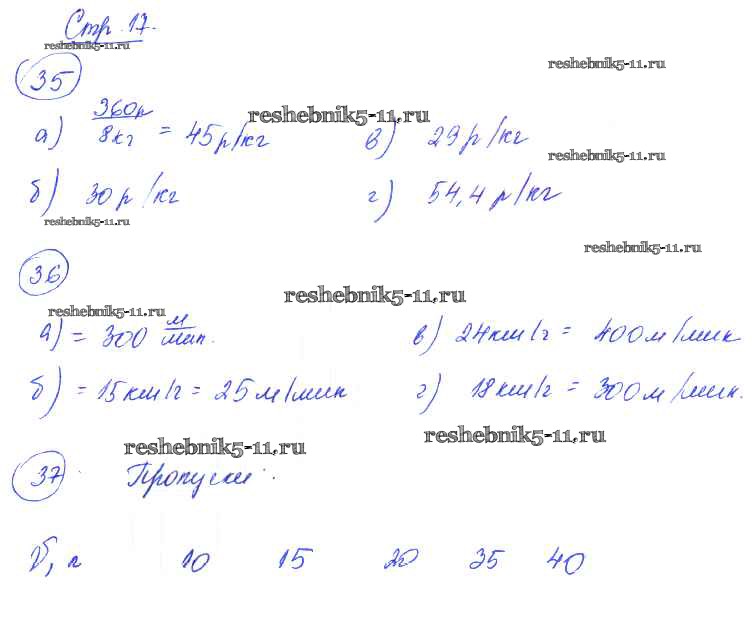 Стр. 17.
reshebnik5-11.ru
reshebnik5-11.ru
35
reshebnik5-11.ru
а) 360р / 8кг = 45р/кг в) 29р/кг
reshebnik5-11.ru
б) 30р/кг г) 54,4р/кг
reshebnik5-11.ru
reshebnik5-11.ru
36
reshebnik5-11.ru
reshebnik5-11.ru
а) = 300 м/мин. в) 24км/г = 400м/мин
б) = 15км/г = 25м/мин г) 18км/г = 300м/мин.
reshebnik5-11.ru
reshebnik5-11.ru
37 Пропуски.
V, л 10 15 20 35 40